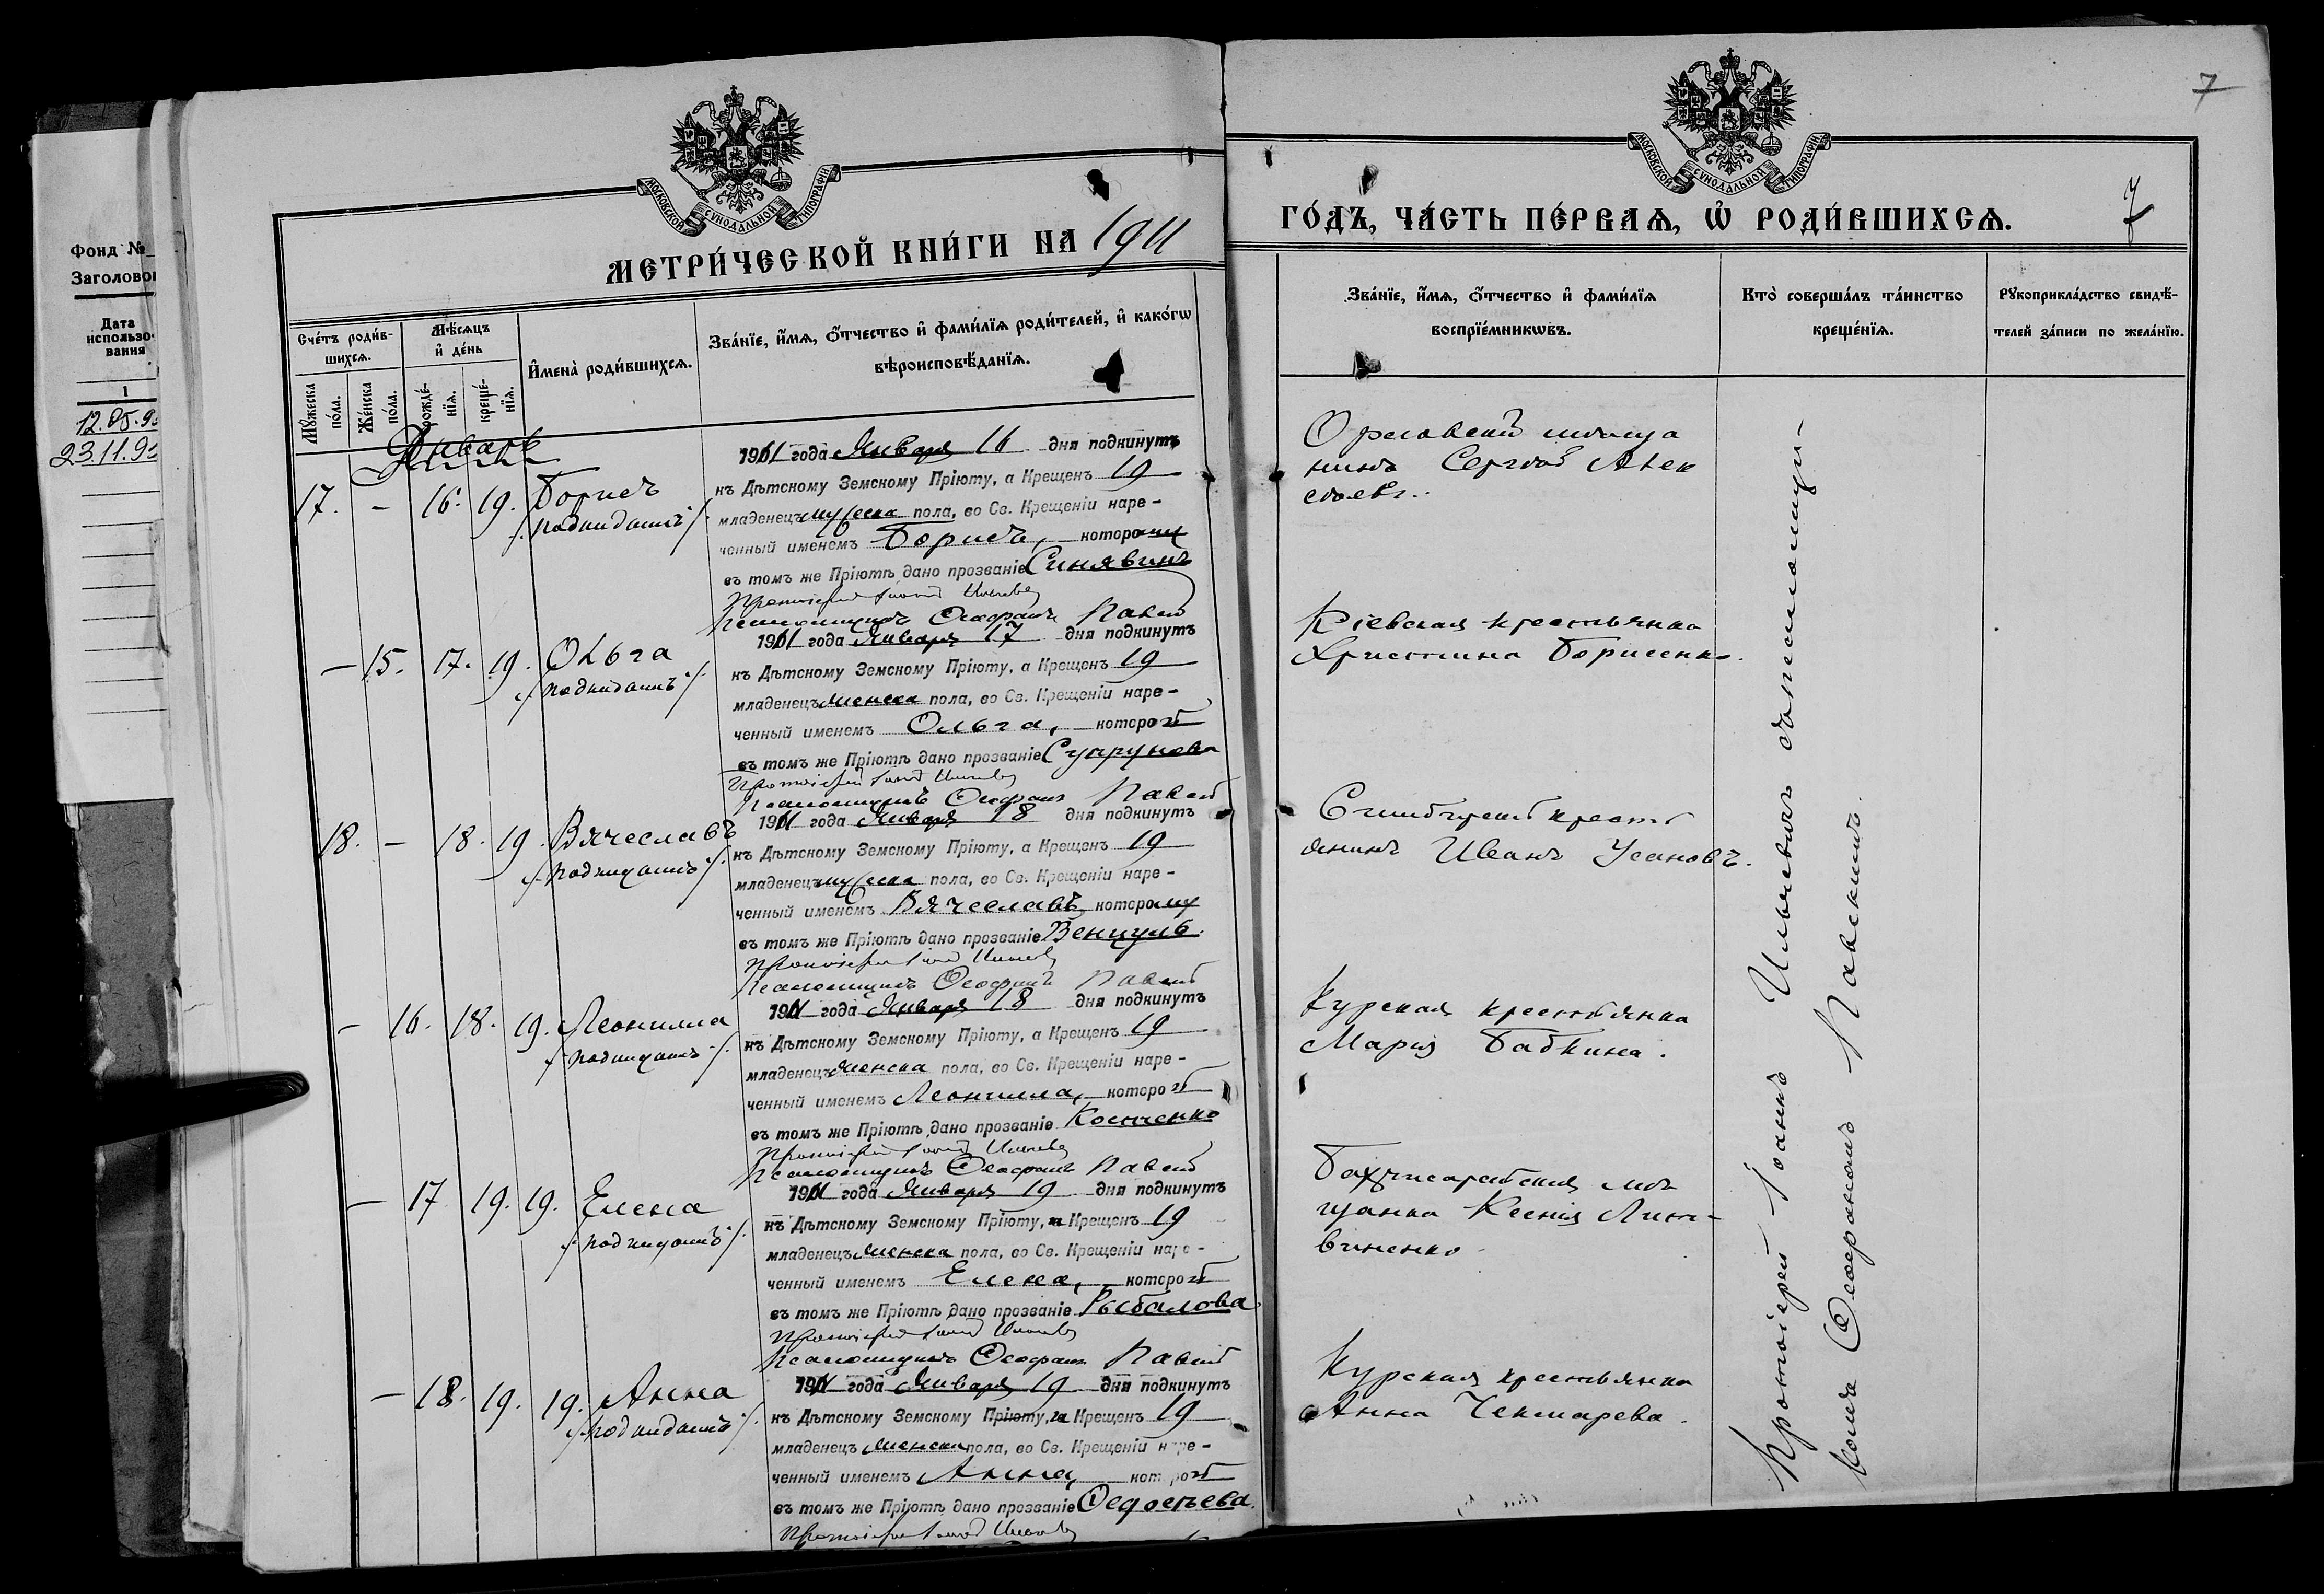 Фонд №
Заголово
Дата
использо-
вания
1
12.05.9
23.11.9
МОСКОВСКОЙ СѴНОДАЛЬНОЙ ТИПОГРАФІИ
МЕТРИ́ЧЕСКОЙ КНИ́ГИ НА 1911
Сче́тъ роди́в-
шихсѧ.
Мꙋ́жеска
по́ла.
Же́нска
по́ла.
Мѣ́сѧцъ
и҆ де́нь
рожде́-
нїѧ.
креще́-
нїѧ.
И҆мена̀ роди́вшихсѧ.
Зва́нїе, и҆́мѧ, ѻ҆́тчество и҆ фами́лїѧ роди́телей, и҆ како́гѡ
вѣроисповѣ́данїѧ.
Январь
17. – 16. 19. Борисъ
/подкидышъ/.
1911 года Января 16 дня подкинутъ
къ Дѣтскому Земскому Пріюту, а Крещенъ 19
младенецъ мужеска пола, во Св. Крещеніи наре-
ченный именемъ Борисъ, которому
въ томъ же Пріютѣ дано прозваніе Синявинъ
Протоіерей Іоаннъ
Псаломщикъ Ѳеофанъ
– 15. 17. 19. Ольга
/подкидышъ/.
1911 года Января 17 дня подкинутъ
къ Дѣтскому Земскому Пріюту, а Крещенъ 19
младенецъ женска пола, во Св. Крещеніи наре-
ченный именемъ Ольга, которой
въ томъ же Пріютѣ дано прозваніе Супрунова
Протоіерей Іоаннъ
Псаломщикъ Ѳеофанъ
18. – 18. 19. Вячеславъ
/подкидышъ/.
1911 года Января 18 дня подкинутъ
къ Дѣтскому Земскому Пріюту, а Крещенъ 19
младенецъ мужеска пола, во Св. Крещеніи наре-
ченный именемъ Вячеславъ, которому
въ томъ же Пріютѣ дано прозваніе Венцуль
Протоіерей Іоаннъ
Псаломщикъ Ѳеофанъ
– 16. 18. 19. Леонилла
/подкидышъ/.
1911 года Января 18 дня подкинутъ
къ Дѣтскому Земскому Пріюту, а Крещенъ 19
младенецъ женска пола, во Св. Крещеніи наре-
ченный именемъ Леонилла, которой
въ томъ же Пріютѣ дано прозваніе Костенко
Протоіерей Іоаннъ
Псаломщикъ Ѳеофанъ
– 17 19. 19. Елена
/подкидышъ/.
1911 года Января 19 дня подкинутъ
къ Дѣтскому Земскому Пріюту, и Крещенъ 19
младенецъ женска пола, во Св. Крещеніи наре-
ченный именемъ Елена, которой
въ томъ же Пріютѣ дано прозваніе Рыбалова
Протоіерей Іоаннъ
Псаломщикъ Ѳеофанъ
– 18. 19. 19. Анна
/подкидышъ/.
1911 года Января 19 дня подкинутъ
къ Дѣтскому Земскому Пріюту, и Крещенъ 19
младенецъ женска пола, во Св. Крещеніи наре-
ченный именемъ Анна, которой
въ томъ же Пріютѣ дано прозваніе Ѳедосѣева.
Протоіерей Іоаннъ
7
МОСКОВСКОЙ СѴНОДАЛЬНОЙ ТИПОГРАФІИ
ГО́ДЪ, ЧА́СТЬ ПЕ́РВАѦ, Ѡ҆ РОДИ́ВШИХСѦ.
7
Зва́нїе, и҆́мѧ, ѻ҆́тчество и҆ фами́лїѧ
воспрїе́мникѡвъ.
Кто̀ соверша́лъ та́инство
креще́нїѧ.
Рꙋкоприкла́дство свидѣ́-
телей за́писи по жела́нїю.
Орловскій мѣща
нинъ Сергѣй Алек
сѣевъ.
Кіевская крестьянка
Христина Борисенко.
Симбирскій крест
янинъ Иванъ Усановъ.
Курская крестьянка
Марія Бабкина.
Бахчисарайская мѣ
щанка Ксенія Лит-
виненко
Курская крестьянка
Анна Чекмарева.
Протоіерей Іоаннъ Ильчевичъ съ псаломщи-
комъ Ѳеофаномъ Павскимъ.